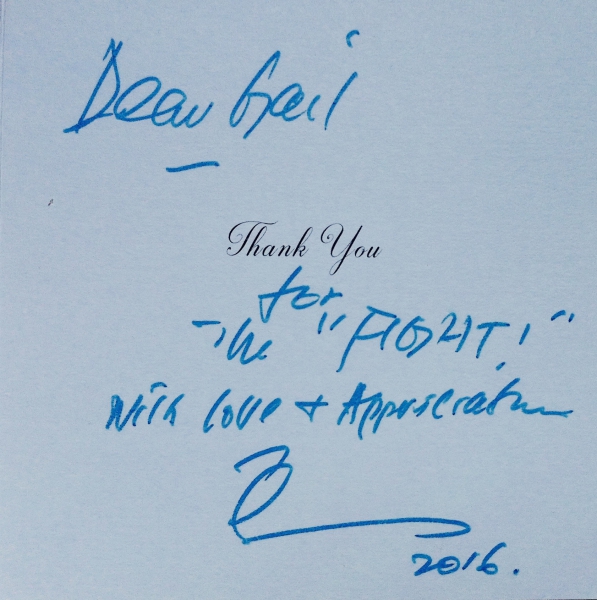 Dear Gail
Thank You
for
the "FIGHT!"
With Love + Appreciation
2016.